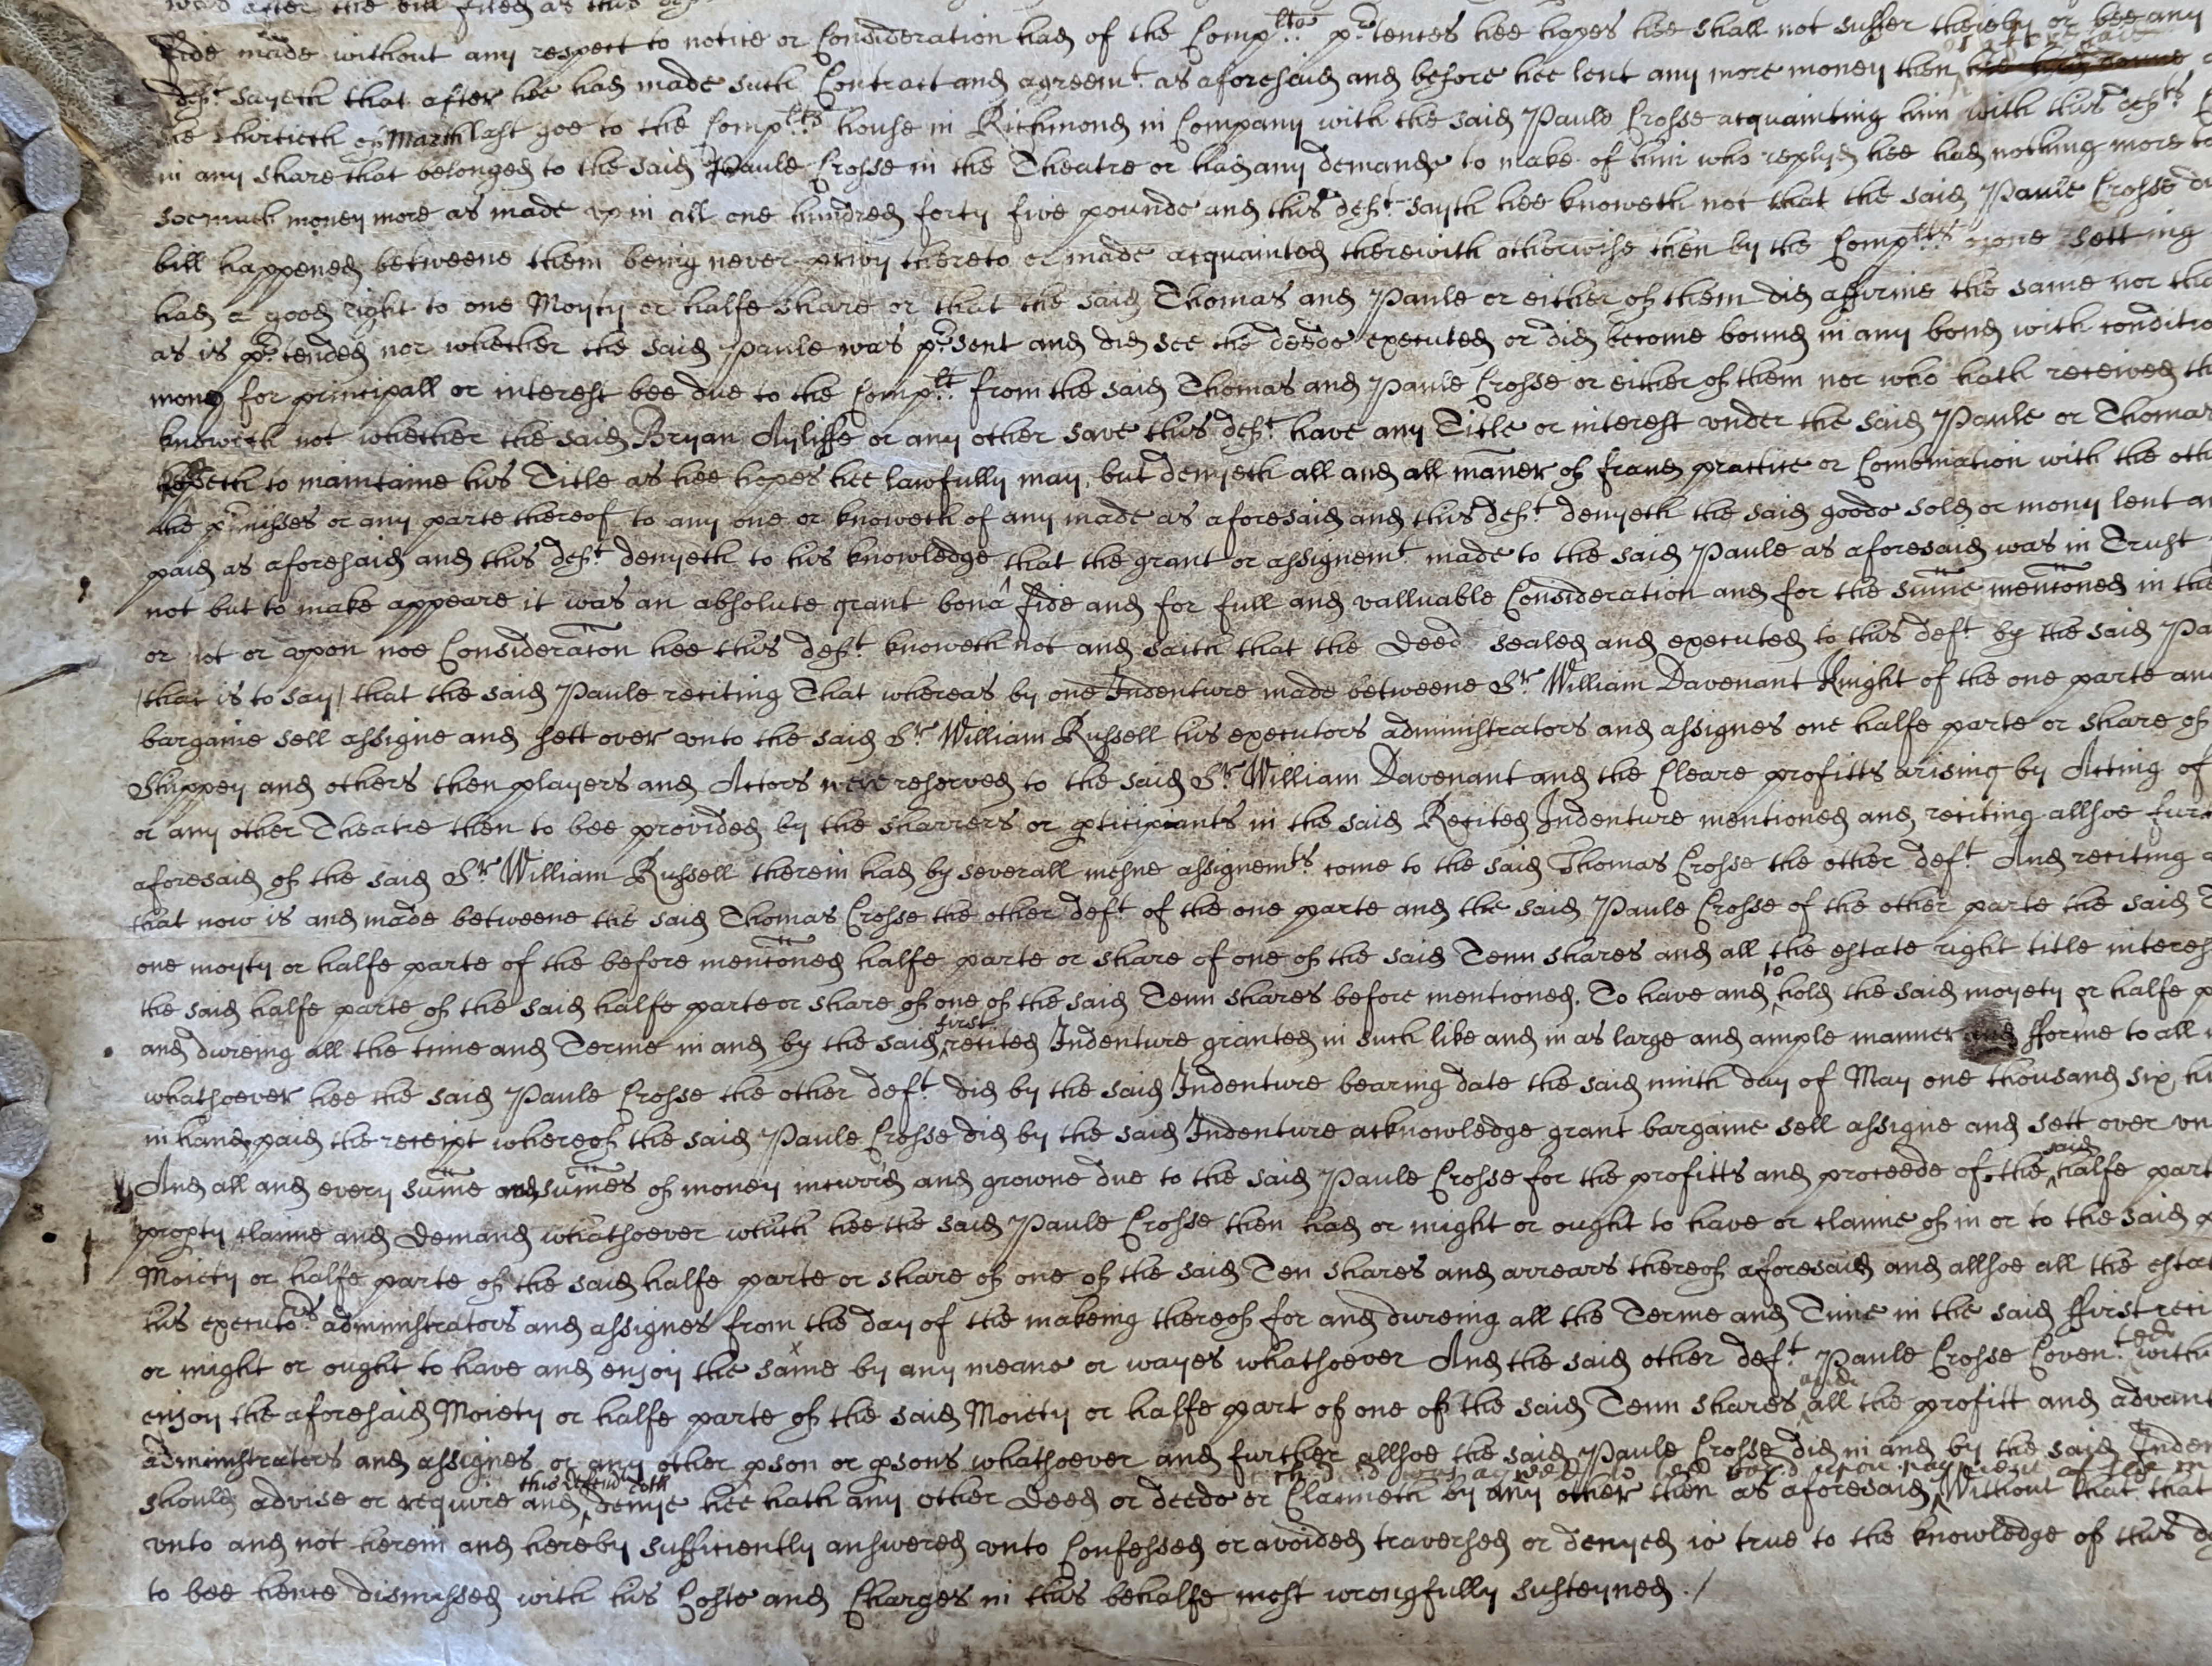 after the bill filed as this
fide made without any respect to notice or Consideration had of the Complts prtences hee hopes hee shall not suffer thereby or bee any
deft sayeth that after hee had made such Contract and agreemt as aforesaid and before hee lent any more money then
the thirtieth of March last goe to the Complts house in Richmond in Company with the said Paule Crosse acquainting him with this defts
in any share that belonged to the said Paule Crosse in the Theatre or had any demands to make of him who replyed hee had nothing more to
soe much money more as made vp in all one hundred forty five pounds and this deft sayth hee knoweth not that the said Paule Crosse
bill happened betweene them being never privy thereto or made acquainted therewith otherwise then by the Complts owne setting
had a good right to one Moyty or halfe share or that the said Thomas and Paule or either of them did affirme the same nor
as is prtended nor whether the said Paule was prsent and did see the deede executed or did become bound in any bond with
mony for principall or interest bee due to the Complt from the said Thomas and Paule Crosse or either of them nor who hath received
knoweth not whether the said Bryan Ayliffe or any other save this deft have any Title or interest vnder the said Paule or Thomas
to maintaine his Title as hee hopes hee lawfully may, but denyeth all and all maner of fraud practice or Combination with the
the prmisses or any parte thereof to any one or knoweth of any made as aforesaid and this deft denyeth the said goods sold or mony lent
paid as aforesaid and this deft denyeth to his knowledge that the grant or assignemt made to the said Paule as aforesaid was in Trust
not but to make appeare it was an absolute grant bonâ fide and for full and valluable Consideration and for the sume mentoned in the
or not or vpon noe Consideraton hee this deft knoweth not and saith that the Deed sealed and executed to this deft by the said
(that is to say) that the said Paule reciting That whereas by one Indenture made betweene Sr William Davenant Knight of the one parte and
bargaine sell assigne and sett over vnto the said Sr William Russell his executors administrators and assignes one halfe parte or share of
Shippey and others then players and Actors were reserved to the said Sr William Davenant and the Cleare profitts arising by Acting of
or any other Theatre then to bee provided by the sharrers or pticipants in the said Recited Indenture mentioned and, reciting allsoe
aforesaid of the said Sr William Russell therein had by severall mesne assignemts come to the said Thomas Crosse the other deft And reciting
that now is and made betweene the said Thomas Crosse the other deft of the one parte and the said Paule Crosse of the other parte the said
one moyty or halfe parte of the before mentoned halfe parte or share of one of the said Tenn shares and all the estate right title
the said halfe parte of the said halfe parte or share of one of the said Tenn shares before mentioned. To have and to hold the said moyety or halfe
and dureing all the time and Terme in and by the said first recited Indenture granted in such like and in as large and ample manner and fforme to all
whatsoever hee the said Paule Crosse the other deft did by the said Indenture bearing date the said ninth day of May one thousand six
in hand paid the receipt whereof the said Paule Crosse did by the said Indenture acknowledge grant bargaine sell assigne and sett over
And all and every sume and sumes of money incurrd and growne due to the said Paule Crosse for the profitts and proceede of the said halfe
propty claime and Demand whatsoever which hee the said Paule Crosse then had or might or ought to have or claime of in or to the said
Moiety or halfe parte of the said halfe parte or share of one of the said Ten shares and arrears thereof aforesaid and allsoe all the
his executors administrators and assignes from the day of the makeing thereof for and dureing all the Terme and Time in the said ffirst
or might or ought to have and enjoy the same by any means or wayes whatsoever And the said other deft Paule Crosse Covent
enjoy the aforesaid Moiety or halfe parte of the said Moiety or halfe part of one of the said Tenn shares and all the profitt and
administrators and assignes or any other pson or psons whatsoever and further allsoe the said Paule Crosse did in and by the said
should advise or require and this defend doth denye hee hath any other Deed or deeds or Claimeth by any other then as aforesaid Without that that
vnto and not herein and hereby sufficiently answered vnto Confessed or avoided traversed or denyed is true to the knowledge of this
to bee hence dismissed with his Costs and Charges in this behalfe most wrongfully susteyned ./